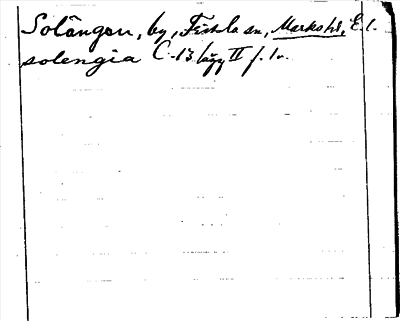 Solängen, by, Fistla sn, Markshd, E. l.
solengia C-13 lägg II f. 1v.